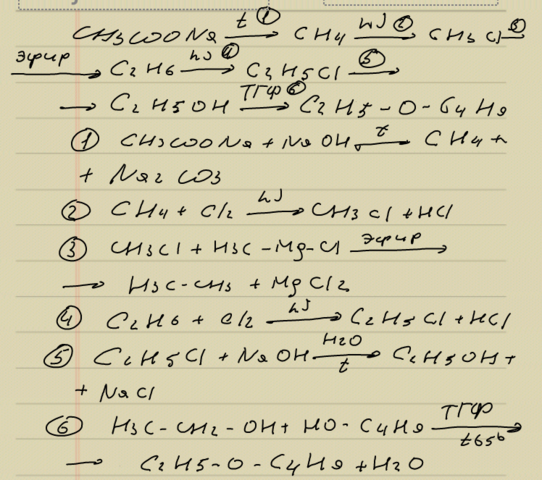 CH3COONa t ① → CH4 hν ② → CH3Cl ③ →
эфир → C2H6 hν ④ → C2H5Cl ⑤ →
→ C2H5OH ТГФ ⑥ → C2H5-O-C4H9
① CH3COONa + NaOH t → CH4 +
+ Na2CO3
② CH4 + Cl2 hν → CH3Cl + HCl
③ CH3Cl + H3C-Mg-Cl эфир →
→ H3C-CH3 + MgCl2
④ C2H6 + Cl2 hν → C2H5Cl + HCl
⑤ C2H5Cl + NaOH H2O t → C2H5OH +
+ NaCl
⑥ H3C-CH2-OH + HO-C4H9 ТГФ →
→ C2H5-O-C4H9 + H2O